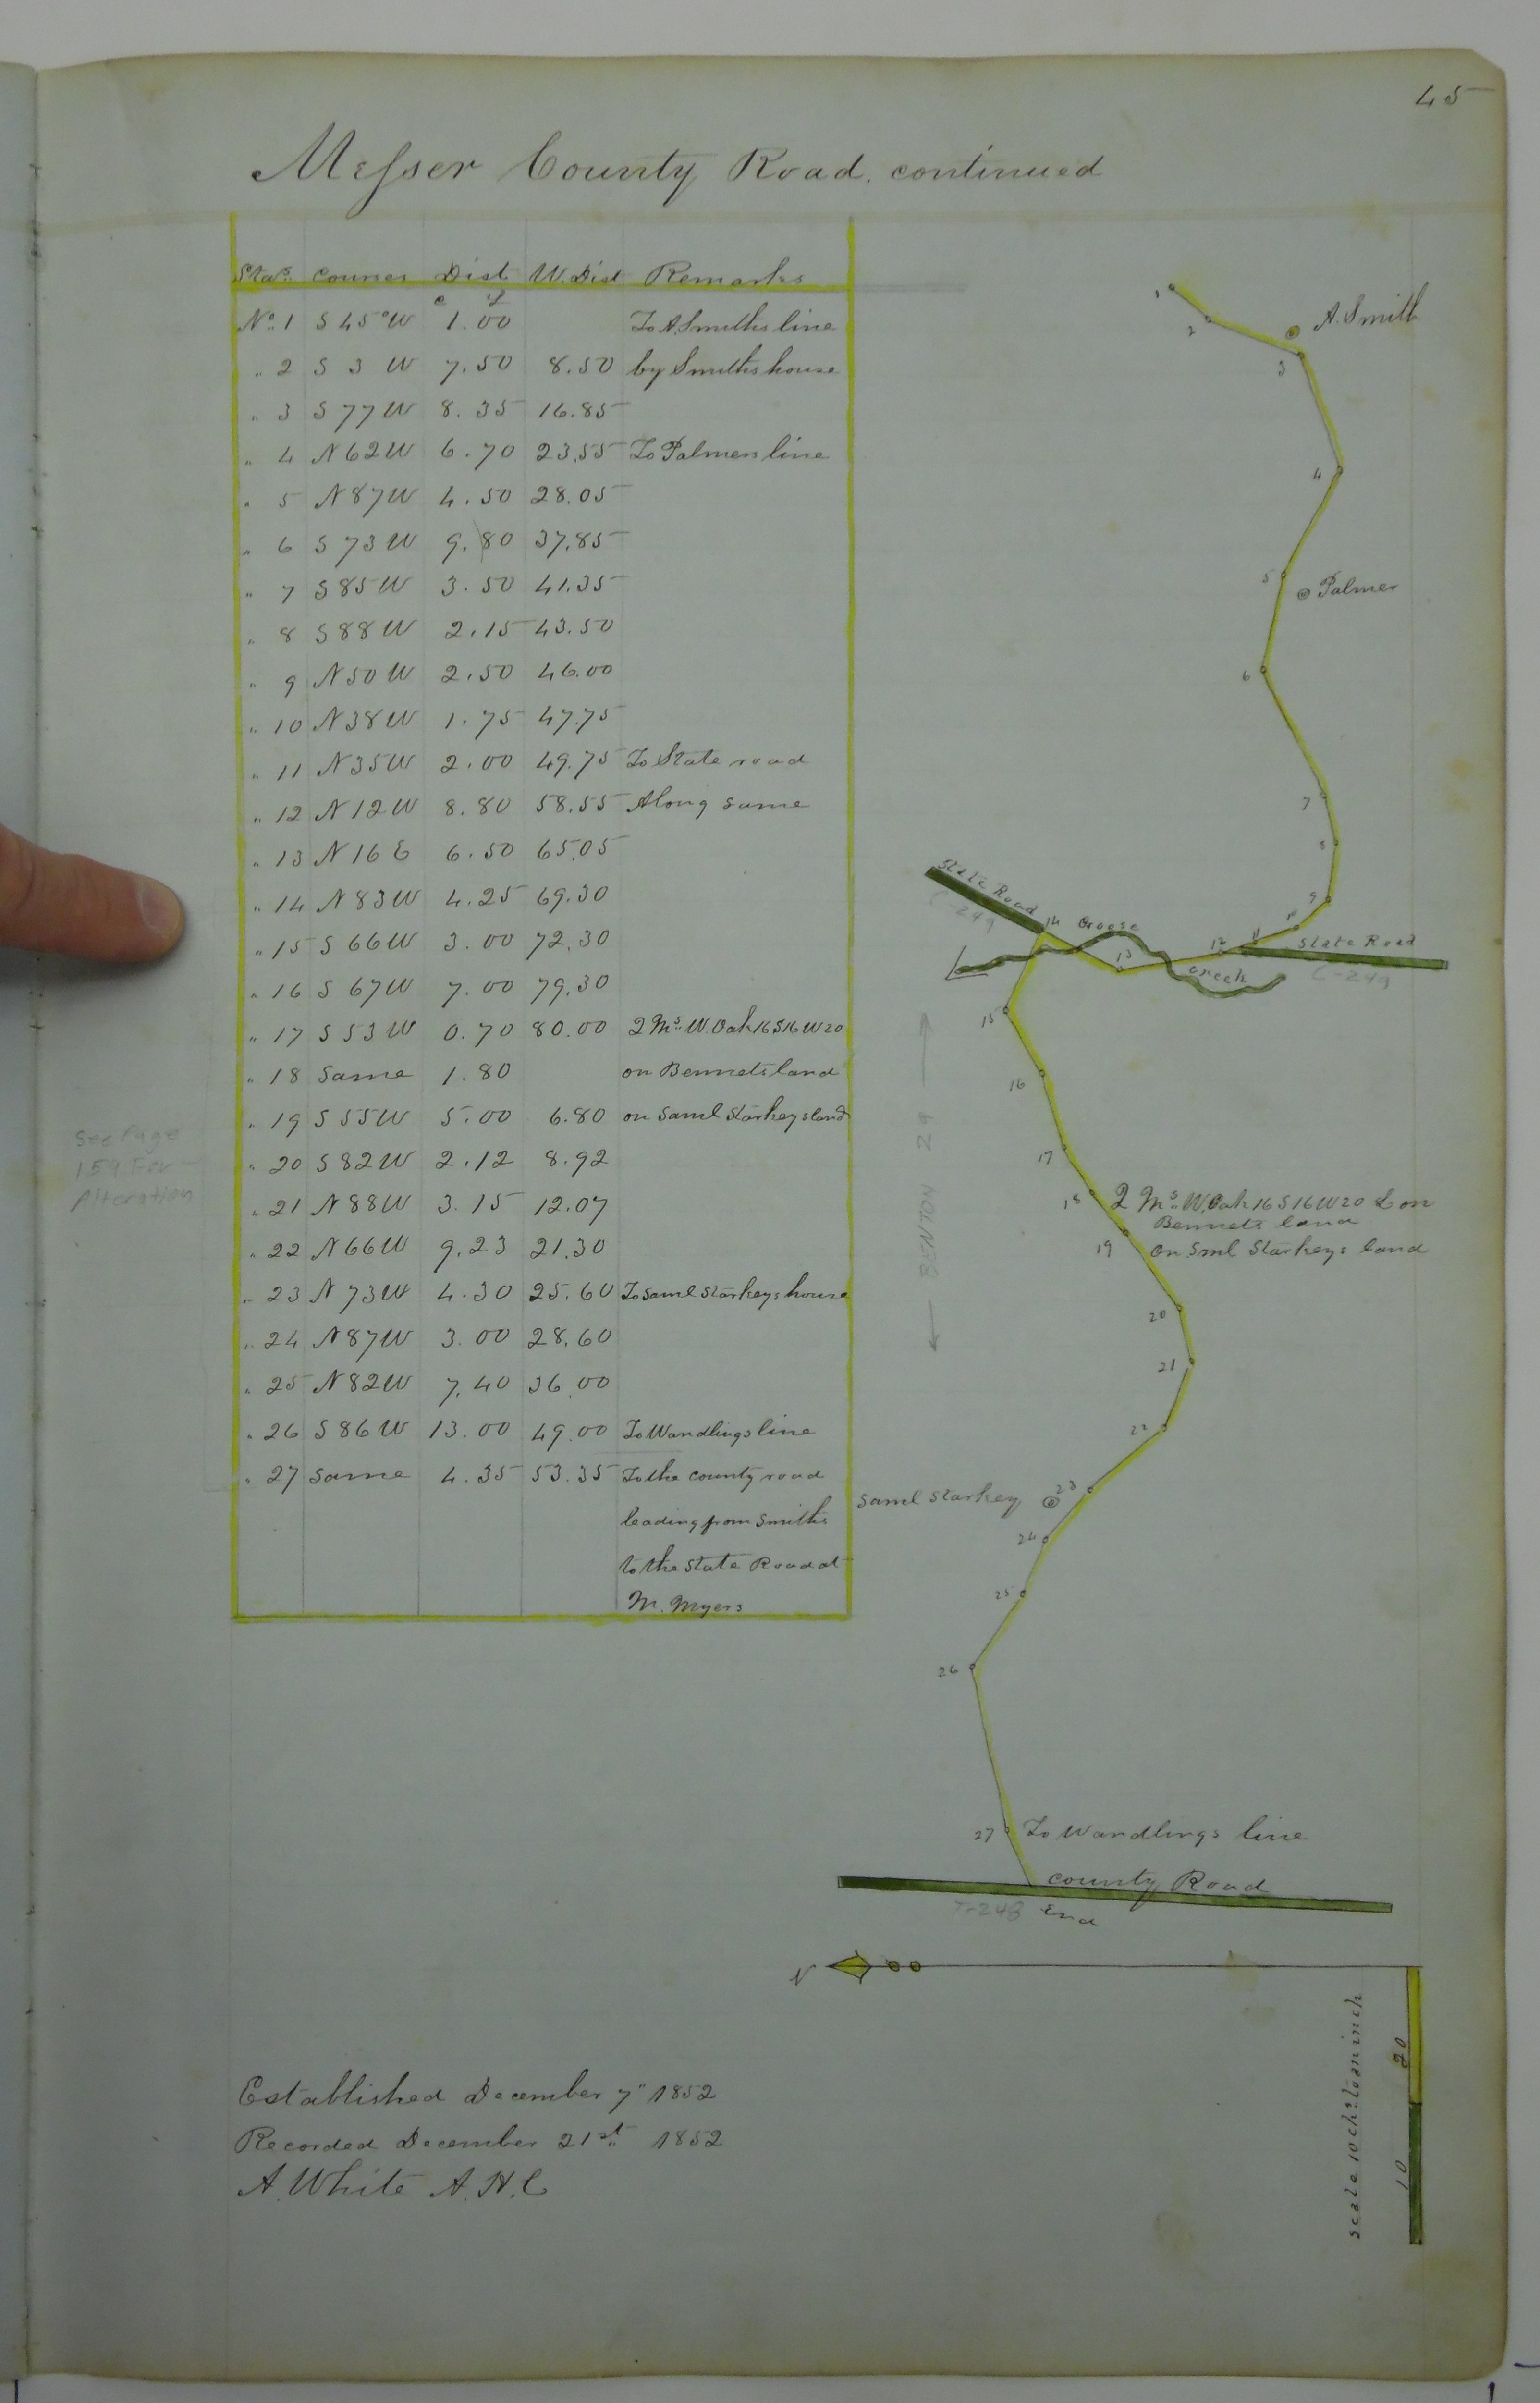 45
Messer County Road. continued
Stas. Courses Dist W. Dist Remarks
c l
No. 1 S 45° W 1.00 To A. Smiths line
" 2 S 3 W 7.50 8.50 by Smiths house
" 3 S 77 W 8.35 16.85
" 4 N 62 W 6.70 23.55 To Palmers line
" 5 N 87 W 4.50 28.05
" 6 S 73 W 9.80 37.85
" 7 S 85 W 3.50 41.35
" 8 S 88 W 2.15 43.50
" 9 N 50 W 2.50 46.00
" 10 N 38 W 1.75 47.75
" 11 N 35 W 2.00 49.75 To State road
" 12 N 12 W 8.80 58.55 Along same
" 13 N 16 E 6.50 65.05
" 14 N 83 W 4.25 69.30
" 15 S 66 W 3.00 72.30
" 16 S 67 W 7.00 79.30
" 17 S 53 W 0.70 80.00 2 Ms. W. Oak 16 S 16 W 20
" 18 Same 1.80 on Bennets land
" 19 S 55 W 5.00 6.80 on Saml Starkeys land
" 20 S 82 W 2.12 8.92
" 21 N 88 W 3.15 12.07
" 22 N 66 W 9.23 21.30
" 23 N 73 W 4.30 25.60 To Saml Starkeys house
" 24 N 87 W 3.00 28.60
" 25 N 82 W 7.40 36.00
" 26 S 86 W 13.00 49.00 To Wandlings line
" 27 Same 4.35 53.35 To the county road
leading from Smiths
to the State Road at
M. Myers
See Page
159 For
Alteration
1
2
A. Smith
3
4
5
Palmer
6
7
8
9
State Road
C-249
14
Goose
10
11
12
State Road
13
Creek
C-249
15
16
BENTON 29
17
18
2 Ms. W. Oak 16 S 16 W 20 L on
Bennets land
19
on Sml Starkeys land
20
21
22
Saml Starkey
23
24
25
26
27
To Wandlings line
County Road
T-248
End
N
scale 10 chs. to an inch
20
10
Established December 7" 1852
Recorded December 21st. 1852
A. White A. H. C